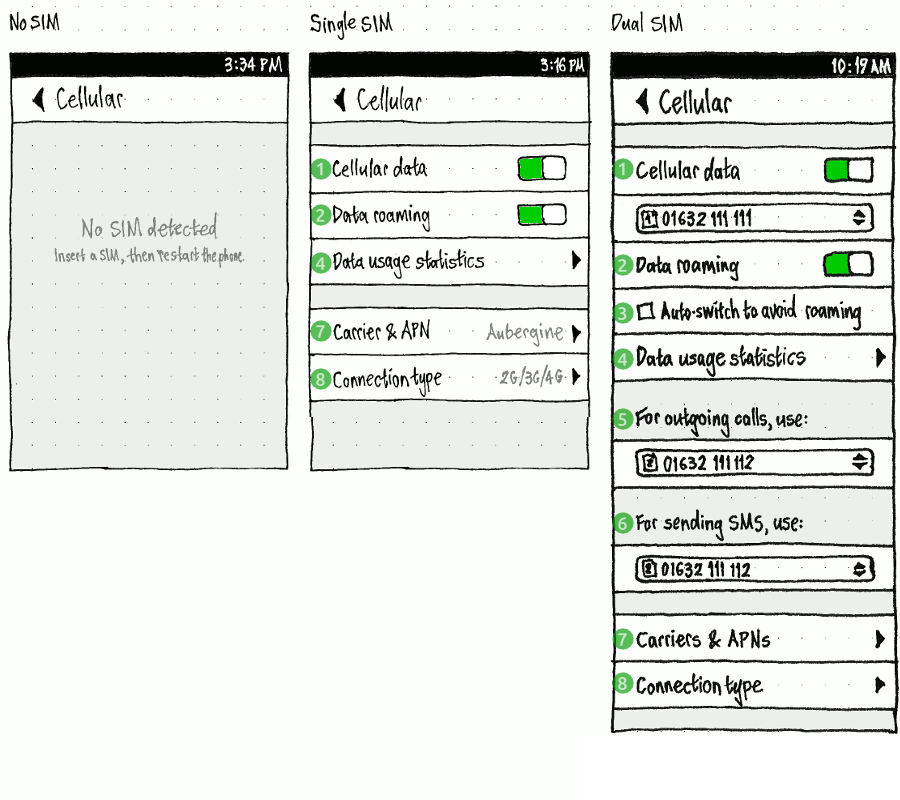 No SIM
3:34 PM
Cellular
No SIM detected
Insert a SIM, then restart the phone.
Single SIM
3:16 PM
Cellular
1 Cellular data
2 Data roaming
4 Data usage statistics
7 Carrier & APN Aubergine
8 Connection type 2G/3G/4G
Dual SIM
10:19 AM
Cellular
1 Cellular data
1 01632 111 111
2 Data roaming
3 Auto-switch to avoid roaming
4 Data usage statistics
5 For outgoing calls, use:
2 01632 111 112
6 For sending SMS, use:
2 01632 111 112
7 Carriers & APNs
8 Connection type